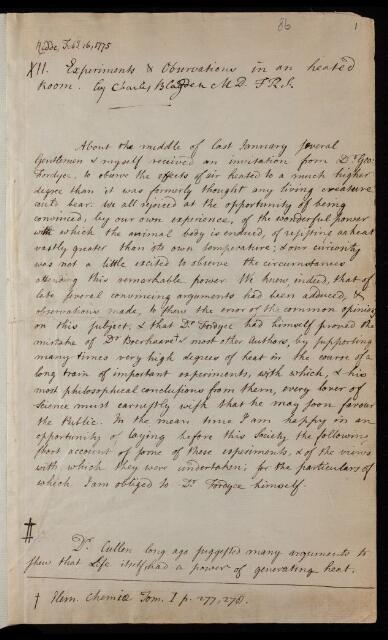 86
1
Redde, Feb. 16, 1775
XII. Experiments & Observations in an heated
Room. by Charles Blagden M.D. F.R.S.
About the middle of last January several
Gentlemen & myself received an invitation from Dr. Geo:
Fordyce, to observe the effects of air heated to a much higher
degree than it was formerly thought any living creature
could bear. We all rejoiced at the opportunity of being
convinced, by our own experience, of the wonderful power
with which the animal body is endued, of resisting an heat
vastly greater than its own temperature; & our curiosity
was not a little excited to observe the circumstances
attending this remarkable power. We knew, indeed, that of
late several convincing arguments had been adduced, &
observations made, to shew the error of the common opinions
on this subject, & that Dr. Fordyce had himself proved the
mistake of Dr. Boerhaave & most other Authors, by supporting
many times very high degrees of heat in the course of a
long train of important experiments, with which, & his
most philosophical conclusions from them, every lover of
Science must earnestly wish that he may soon favour
the Public. In the mean time I am happy in an
opportunity of laying before this Society the following
short account of some of these experiments, & of the views
with which they were undertaken; for the particulars of
which I am obliged to Dr. Fordyce himself.
#
Dr. Cullen long ago suggested many arguments to
shew that Life itself had a power of generating heat.
† Elem. Chemiæ Tom. I p. 277, 278.